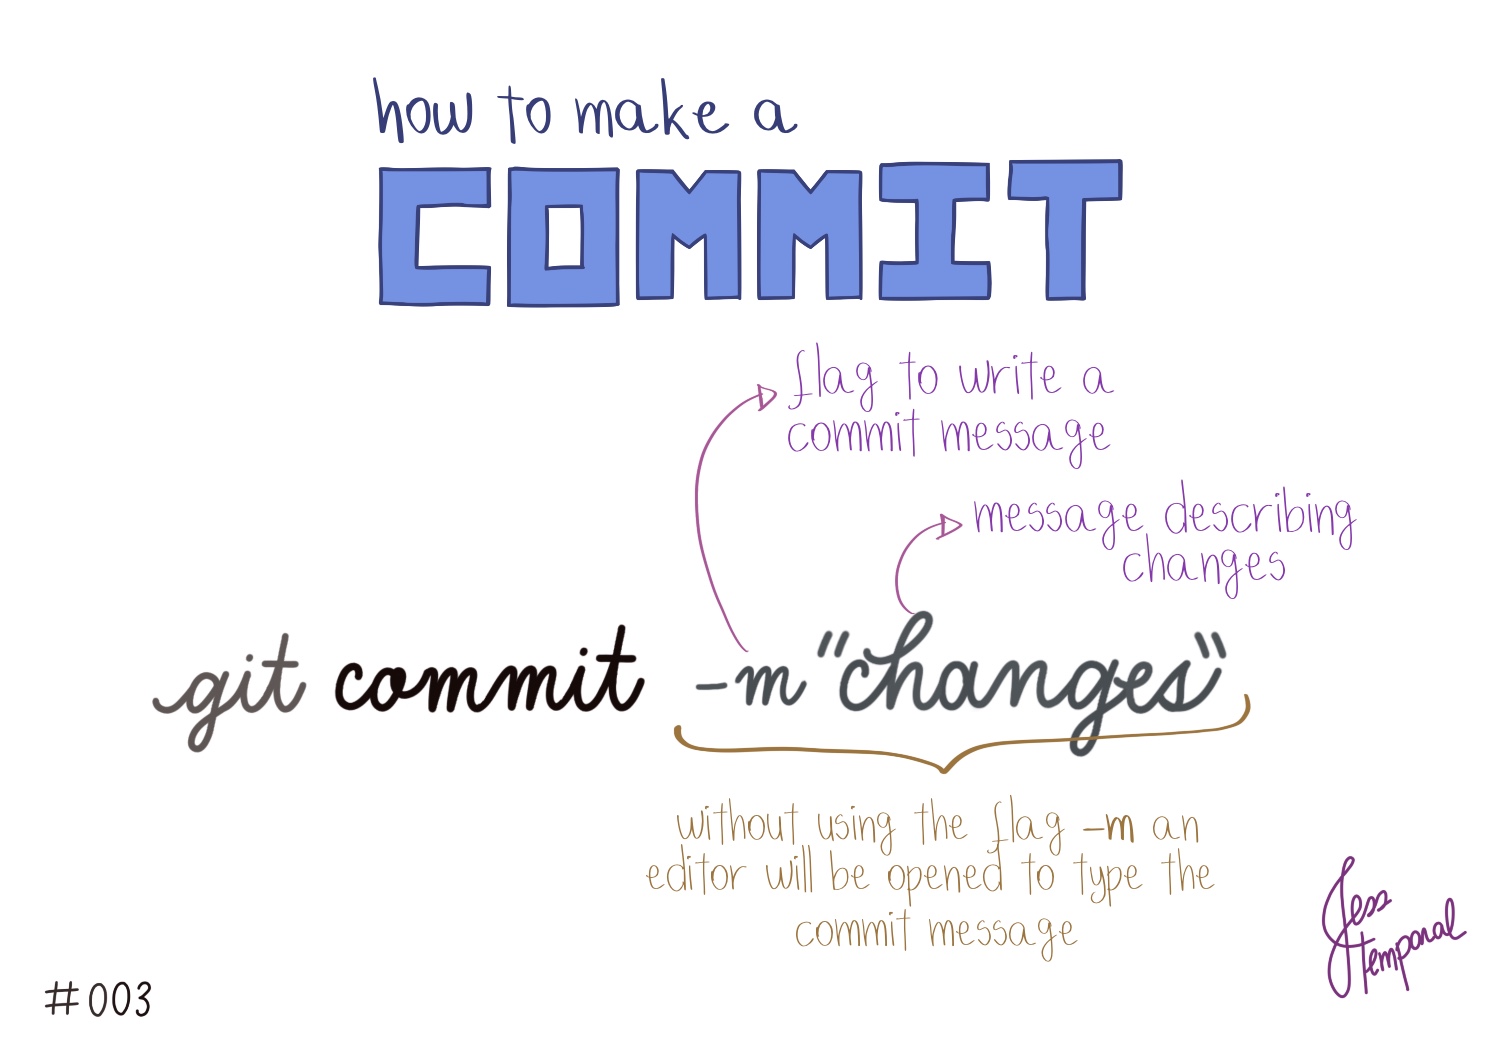 how to make a
COMMIT
flag to write a
commit message
message describing
changes
git commit -m "changes"
without using the flag -m an
editor will be opened to type the
commit message
Jess
temporal
#003